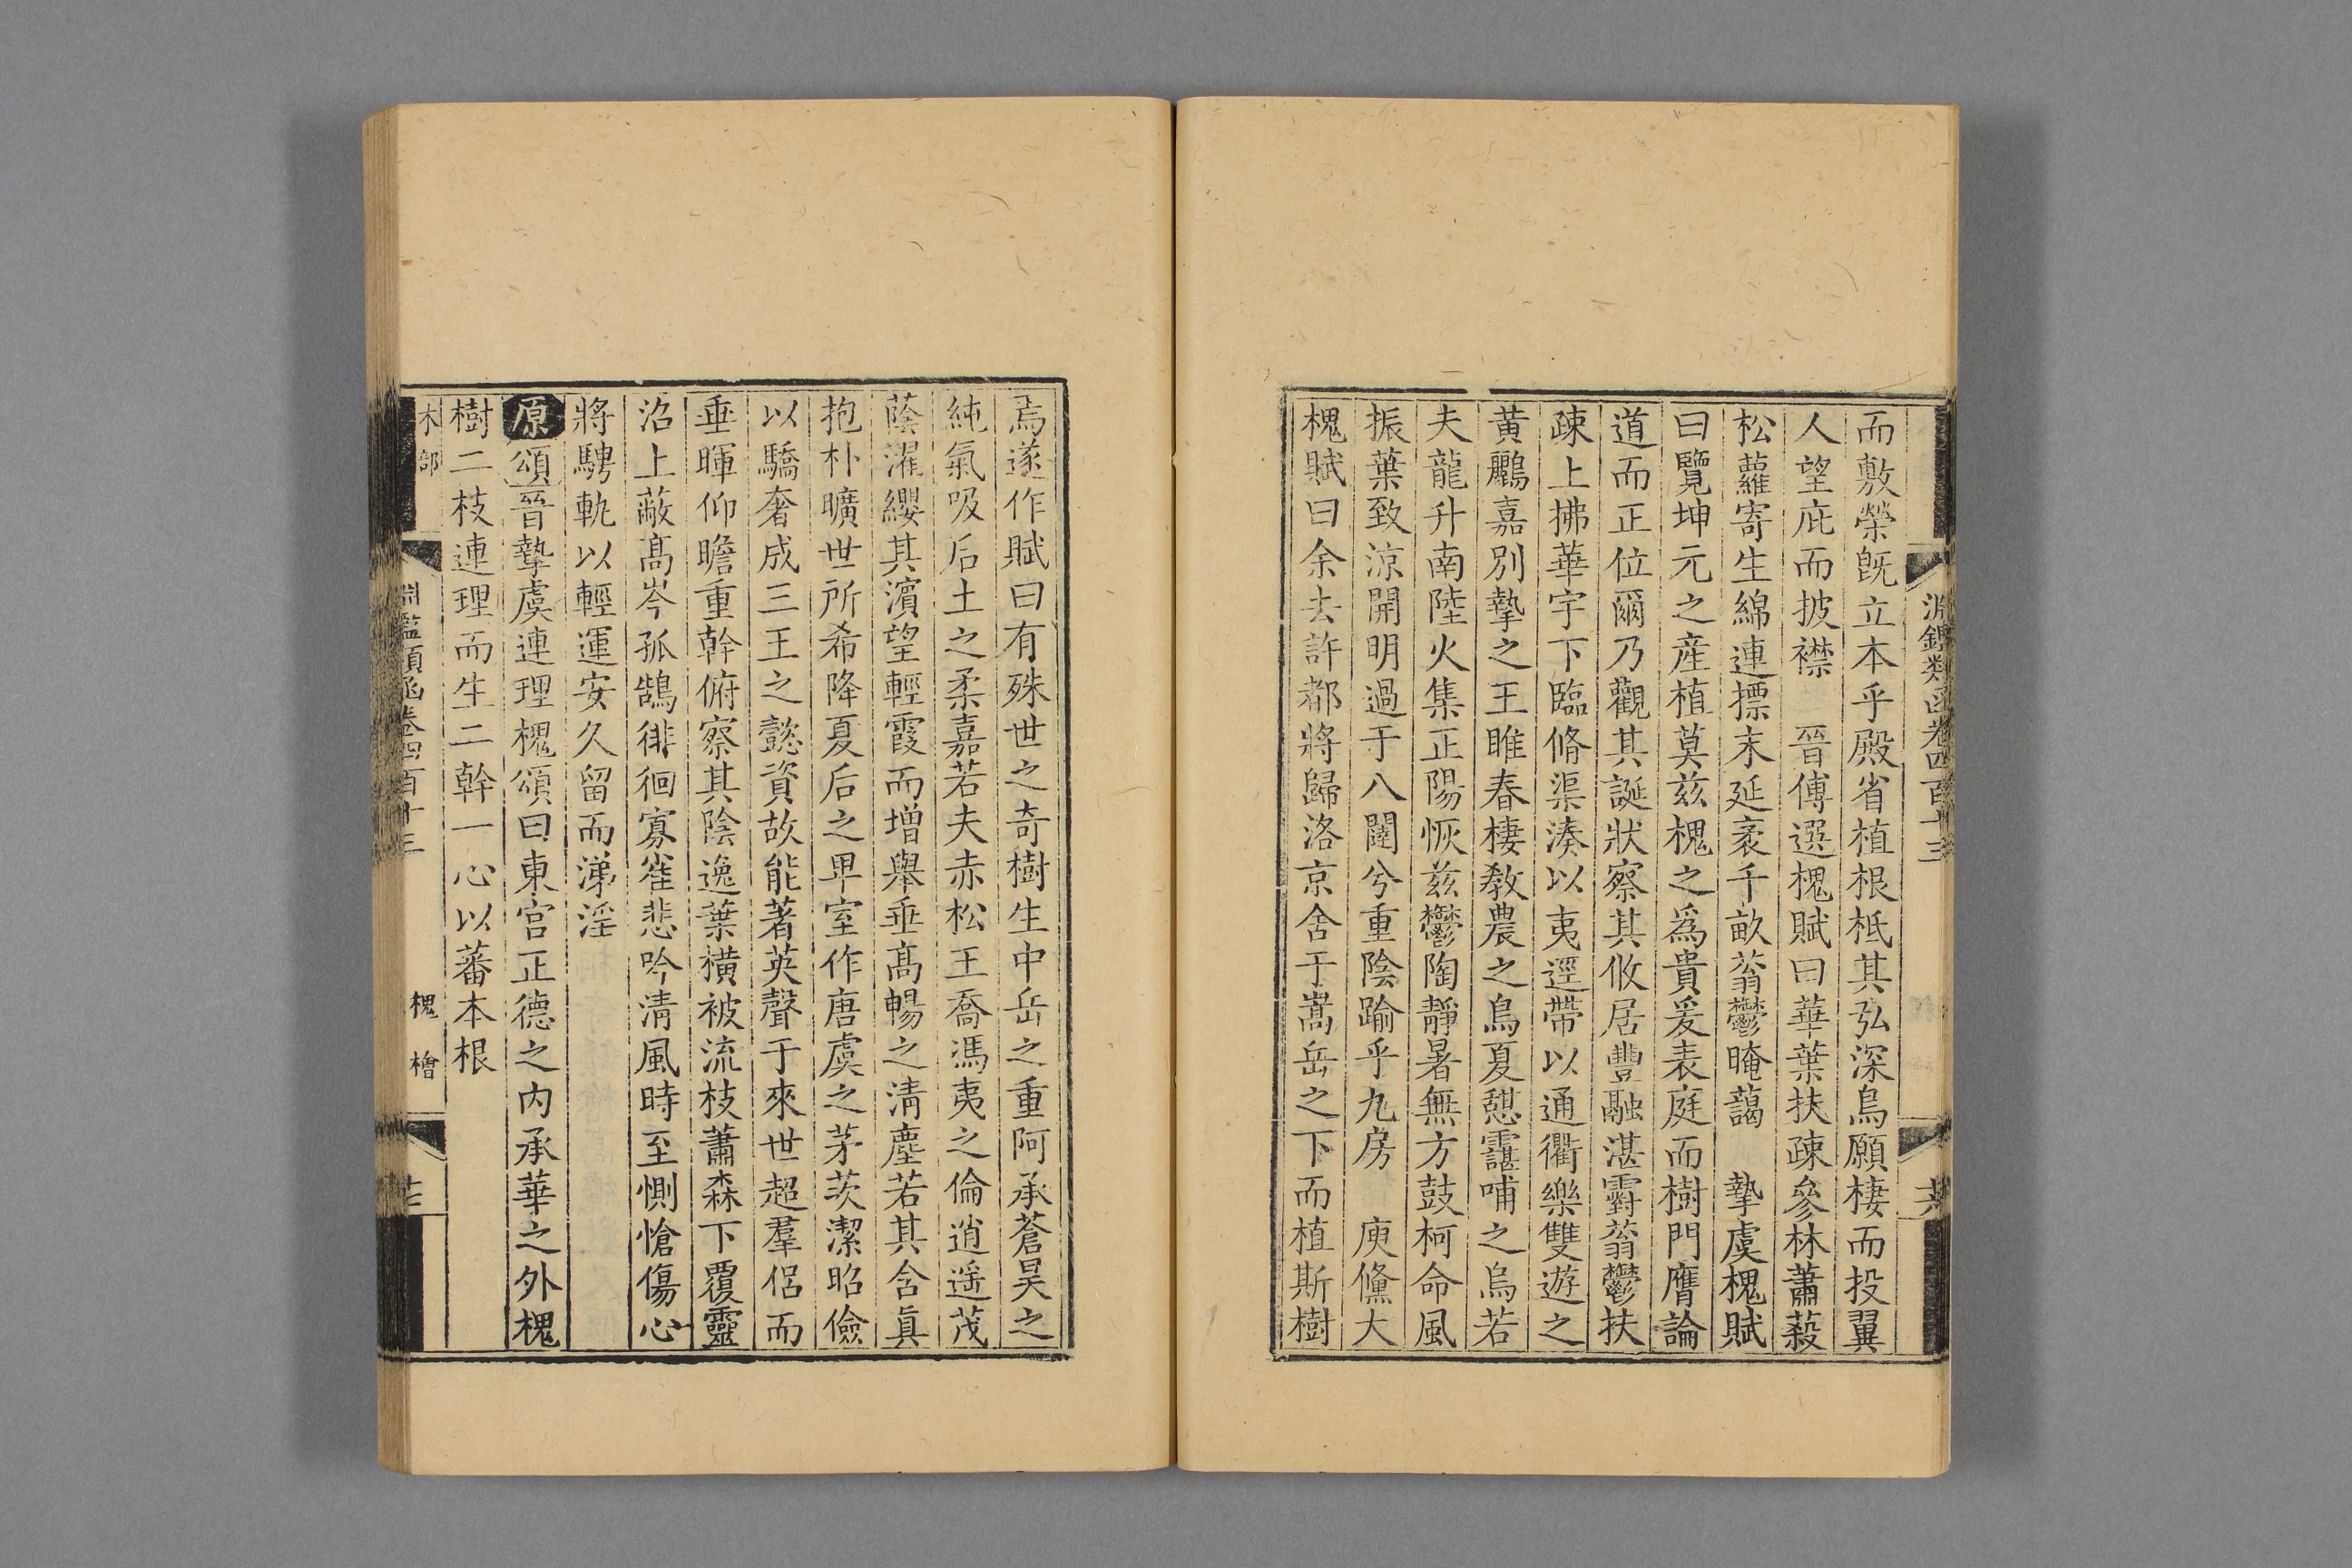 淵鑑類函卷四百十三
而敷榮旣立本乎殿省植根柢其弘深鳥願棲而投翼
人望庇而披襟 晉傅選槐賦曰華葉扶疎參林蕭蔱
松蘿寄生綿連摽末延袤千畝蓊鬱晻藹 摯虞槐賦
曰覽坤元之產植莫茲槐之爲貴爰表庭而樹門膺論
道而正位爾乃觀其誕狀察其攸居豐融湛霨蓊鬱扶
疎上拂華宇下臨脩渠湊以夷逕帶以通衢樂雙遊之
黃鸝嘉別摯之王雎春棲敎農之鳥夏憩𩆍哺之烏若
夫龍升南陸火集正陽恢茲鬱陶靜暑無方鼓柯命風
振葉致涼開明過于八闥兮重陰踰乎九房 庾儵大
槐賦曰余去許都將歸洛京舍于嵩岳之下而植斯樹
焉遂作賦曰有殊世之奇樹生中岳之重阿承蒼昊之
純氣吸后土之柔嘉若夫赤松王喬馮夷之倫逍遥茂
蔭濯纓其濱望輕霞而增舉垂高暢之淸塵若其含眞
抱朴曠世所希降夏后之卑室作唐虞之茅茨潔昭儉
以驕奢成三王之懿資故能著英聲于來世超羣侶而
垂暉仰瞻重幹俯察其陰逸葉橫被流枝蕭森下覆靈
沼上蔽高岑孤鵠徘徊寡雀悲吟淸風時至惻愴傷心
將騁軌以輕運安久留而涕淫
原頌晉摯虞連理槐頌曰東宮正德之內承華之外槐
樹二枝連理而生二幹一心以蕃本根
木部
淵鑑類函卷四百十三
槐 檜